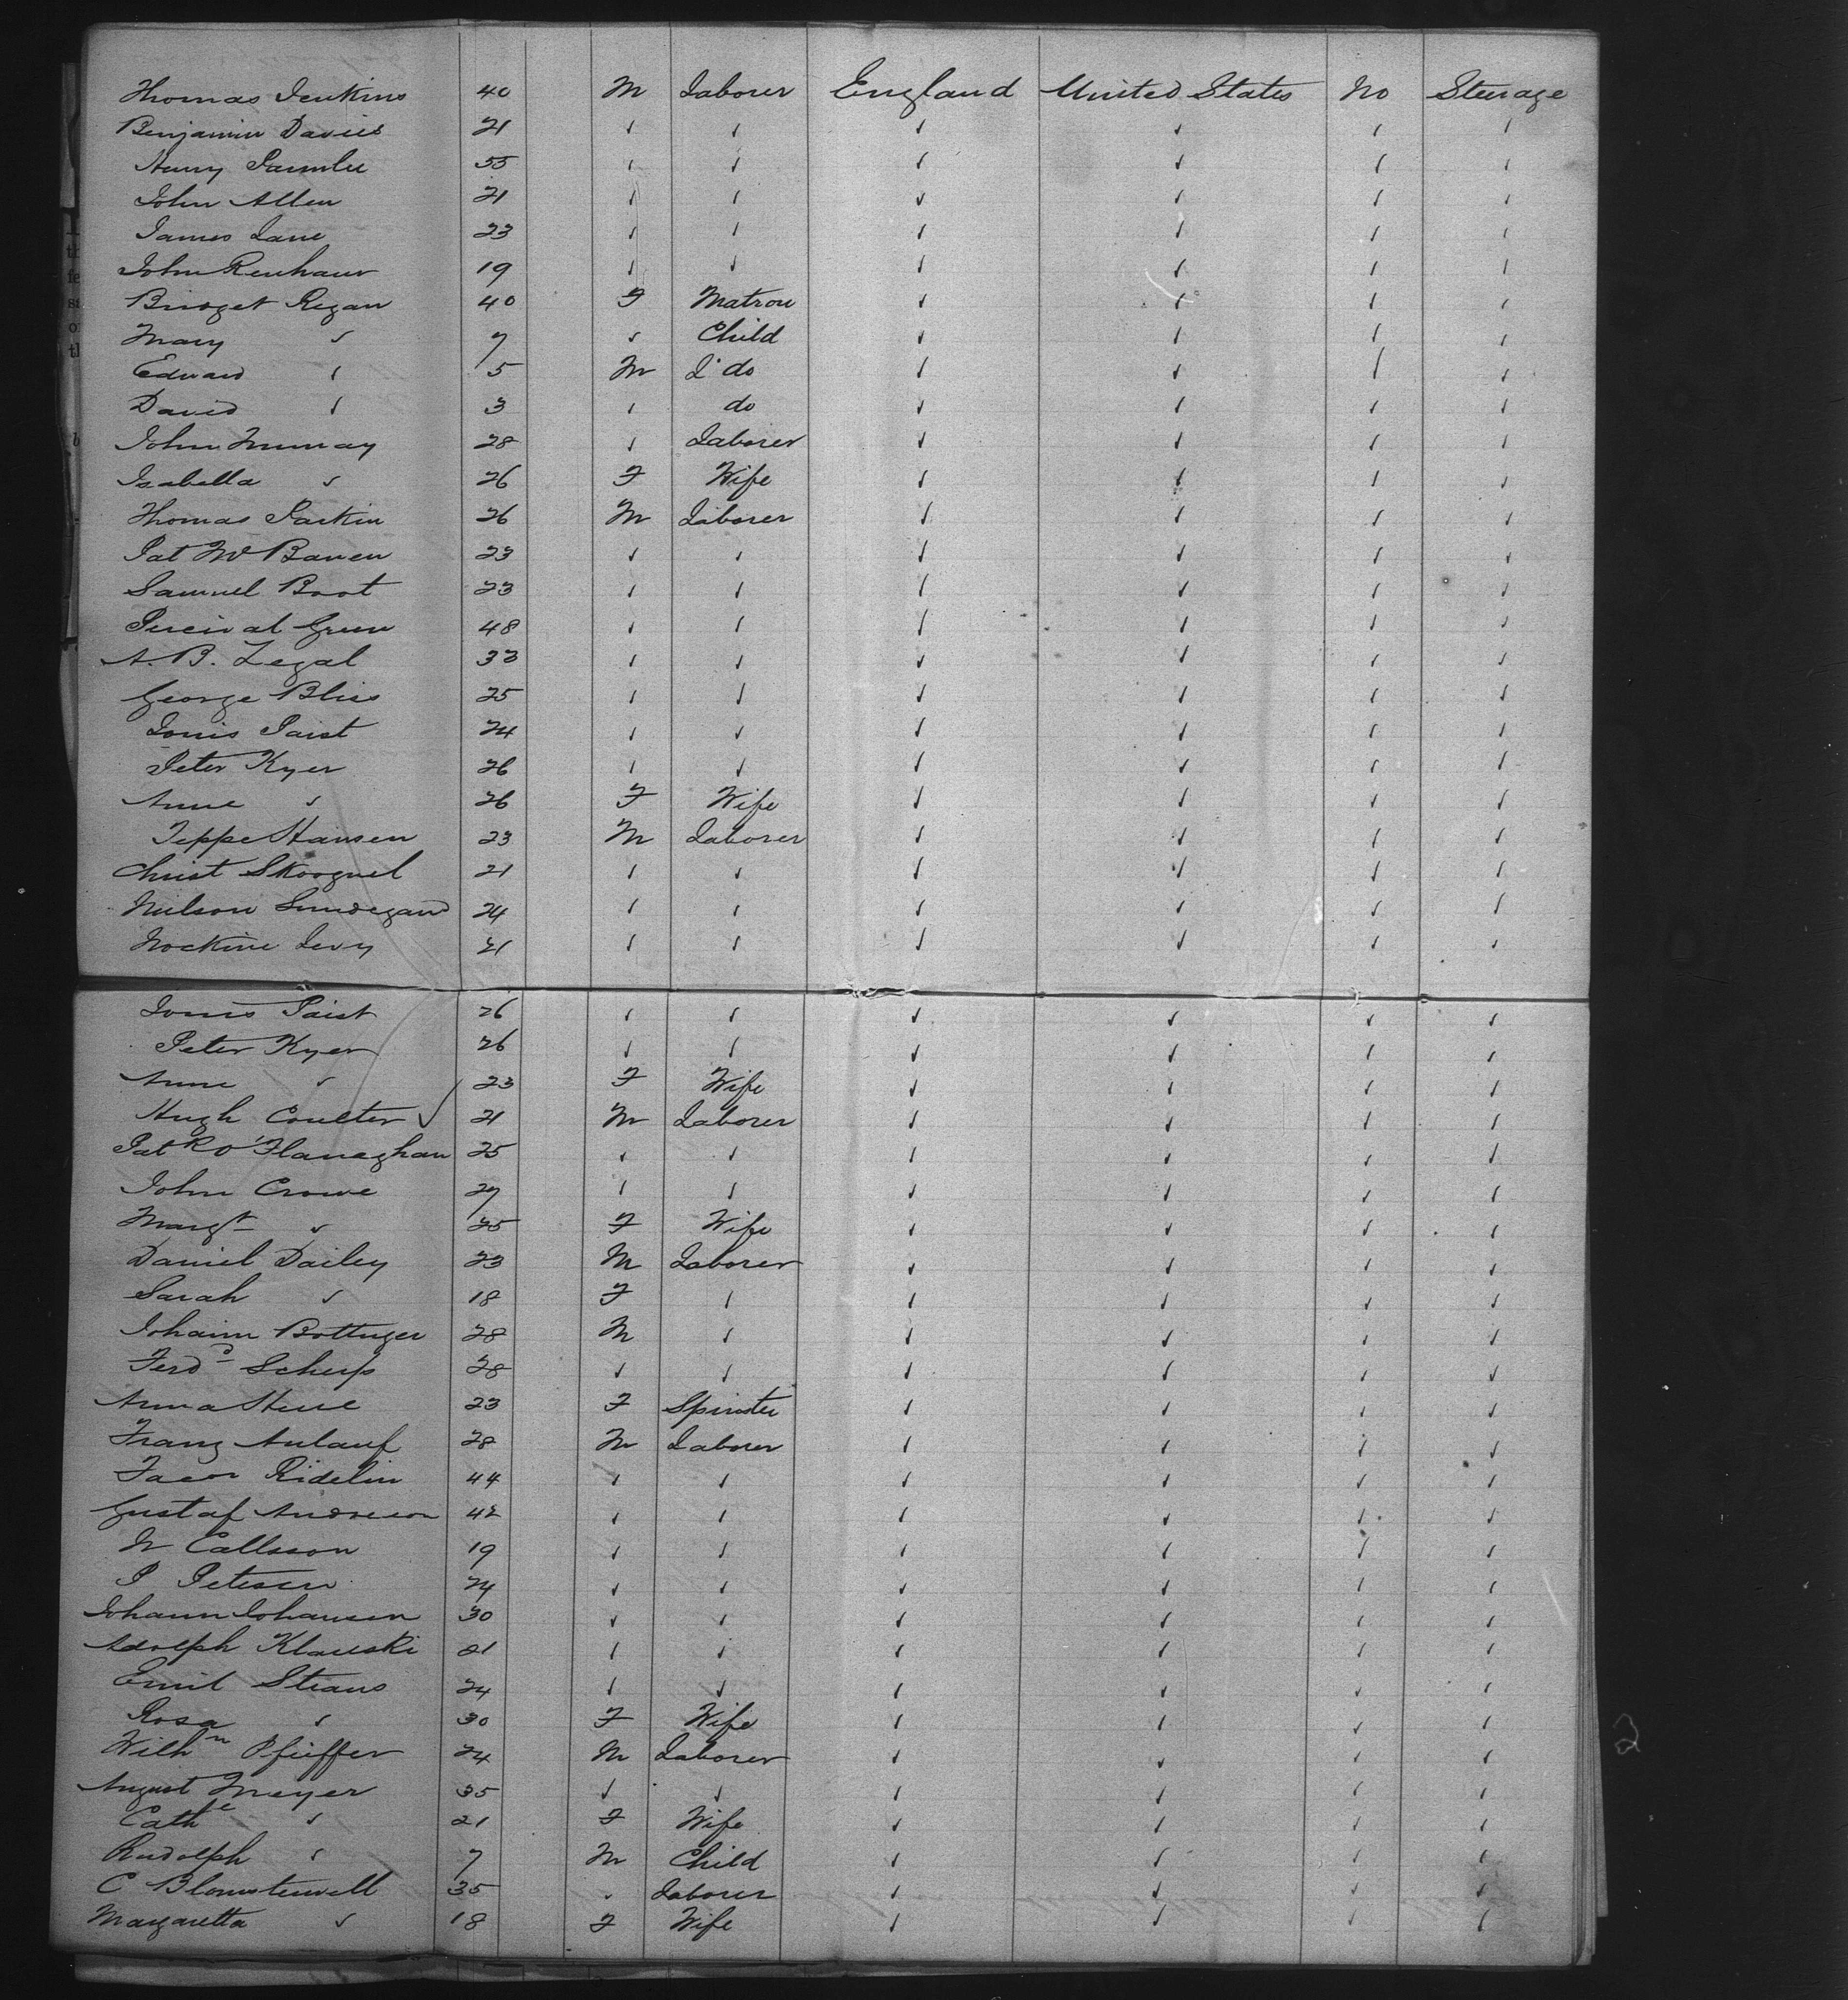 Thomas Jenkins 40 M Laborer England United States No Steerage
Benjamin Davies 21 ✓ ✓ ✓ ✓ ✓ ✓
Henry 55 ✓ ✓ ✓ ✓ ✓ ✓
John Allen 21 ✓ ✓ ✓ ✓ ✓ ✓
James Lane 23 ✓ ✓ ✓ ✓ ✓ ✓
John 19 ✓ ✓ ✓ ✓ ✓ ✓
Bridget Regan 40 F Matron ✓ ✓ ✓ ✓
Mary ✓ 7 ✓ Child ✓ ✓ ✓ ✓
Edward ✓ 5 M do ✓ ✓ ✓ ✓
David ✓ 3 ✓ do ✓ ✓ ✓ ✓
John Murray 28 ✓ Laborer ✓ ✓ ✓ ✓
Isabella ✓ 26 F Wife ✓ ✓ ✓ ✓
Thomas Parkin 26 M Laborer ✓ ✓ ✓ ✓
Pat 23 ✓ ✓ ✓ ✓ ✓ ✓
Samuel Boot 23 ✓ ✓ ✓ ✓ ✓ ✓
Percival Green 48 ✓ ✓ ✓ ✓ ✓ ✓
A. B. Legal 33 ✓ ✓ ✓ ✓ ✓ ✓
George Bliss 25 ✓ ✓ ✓ ✓ ✓ ✓
Louis Paist 24 ✓ ✓ ✓ ✓ ✓ ✓
Peter Kyer 26 ✓ ✓ ✓ ✓ ✓ ✓
Anne ✓ 26 F Wife ✓ ✓ ✓ ✓
Jeppe Hansen 23 M Laborer ✓ ✓ ✓ ✓
Christ 21 ✓ ✓ ✓ ✓ ✓ ✓
24 ✓ ✓ ✓ ✓ ✓ ✓
Levy 21 ✓ ✓ ✓ ✓ ✓ ✓
Louis Paist 26 ✓ ✓ ✓ ✓ ✓ ✓
Peter Kyer 26 ✓ ✓ ✓ ✓ ✓ ✓
Anne ✓ 23 F Wife ✓ ✓ ✓ ✓
Hugh Coulter ✓ 21 M Laborer ✓ ✓ ✓ ✓
Patk O'Flanaghan 25 ✓ ✓ ✓ ✓ ✓ ✓
John Crowe 27 ✓ ✓ ✓ ✓ ✓ ✓
Margt ✓ 25 F Wife ✓ ✓ ✓ ✓
Daniel Dailey 23 M Laborer ✓ ✓ ✓ ✓
Sarah ✓ 18 F ✓ ✓ ✓ ✓ ✓
Johann Bottuger 28 M ✓ ✓ ✓ ✓ ✓
Ferdd 28 ✓ ✓ ✓ ✓ ✓ ✓
Anna 23 F Spinster ✓ ✓ ✓ ✓
Franz Anlauf 28 M Laborer ✓ ✓ ✓ ✓
Ridelin 44 ✓ ✓ ✓ ✓ ✓ ✓
Gustaf Andreeson 42 ✓ ✓ ✓ ✓ ✓ ✓
N Callsson 19 ✓ ✓ ✓ ✓ ✓ ✓
P Petesen 24 ✓ ✓ ✓ ✓ ✓ ✓
Johann Johansen 30 ✓ ✓ ✓ ✓ ✓ ✓
Adolph Klauski 21 ✓ ✓ ✓ ✓ ✓ ✓
Emil Straus 24 ✓ ✓ ✓ ✓ ✓ ✓
Rosa ✓ 30 F Wife ✓ ✓ ✓ ✓
Wilhm Pfeiffer 24 M Laborer ✓ ✓ ✓ ✓
August Meyer 35 ✓ ✓ ✓ ✓ ✓ ✓
Cathe ✓ 21 F Wife ✓ ✓ ✓ ✓
Rudolph ✓ 7 M Child ✓ ✓ ✓ ✓
C Blomsterwell 35 ✓ Laborer ✓ ✓ ✓ ✓
Margaretta ✓ 18 F Wife ✓ ✓ ✓ ✓